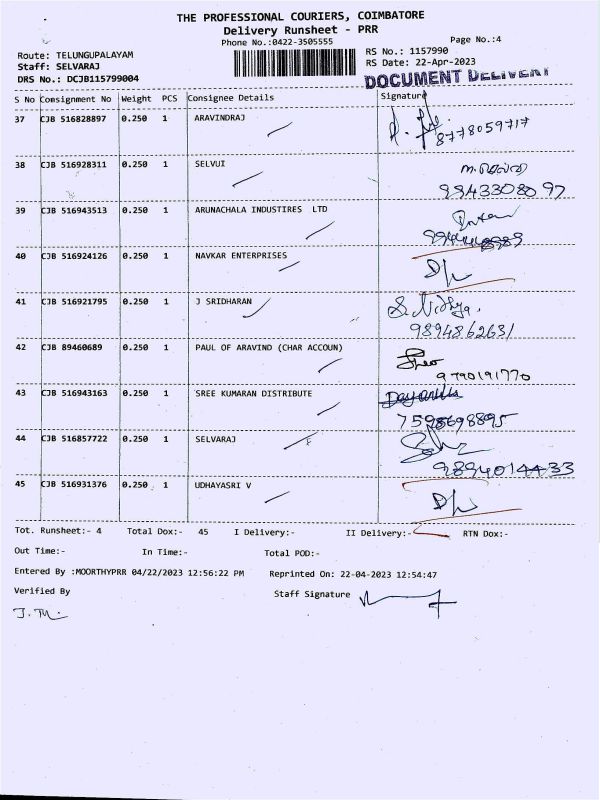 THE PROFESSIONAL COURIERS, COIMBATORE
Delivery Runsheet - PRR
Phone No.:0422-3505555
Page No.:4
Route: TELUNGUPALAYAM
RS No.: 1157990
Staff: SELVARAJ
RS Date: 22-Apr-2023
DRS No.: DCJB115799004
DOCUMENT DELIVERY
S No Consignment No Weight PCS Consignee Details Signature
37 CJB 516828897 0.250 1 ARAVINDRAJ
8778059717
38 CJB 516928311 0.250 1 SELVUI
9943308097
39 CJB 516943513 0.250 1 ARUNACHALA INDUSTIRES LTD
40 CJB 516924126 0.250 1 NAVKAR ENTERPRISES
41 CJB 516921795 0.250 1 J SRIDHARAN
S. Nidhya.
9894862631
42 CJB 89460689 0.250 1 PAUL OF ARAVIND (CHAR ACCOUN)
9790191770
43 CJB 516943163 0.250 1 SREE KUMARAN DISTRIBUTE
7598698895
44 CJB 516857722 0.250 1 SELVARAJ
9894014433
45 CJB 516931376 0.250 1 UDHAYASRI V
Tot. Runsheet:- 4 Total Dox:- 45 I Delivery:- II Delivery:- RTN Dox:-
Out Time:- In Time:- Total POD:-
Entered By :MOORTHYPRR 04/22/2023 12:56:22 PM Reprinted On: 22-04-2023 12:54:47
Verified By Staff Signature